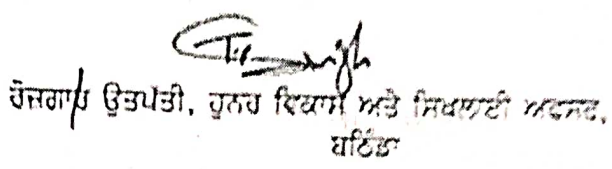 ਰੋਜ਼ਗਾਰ ਉਤਪੱਤੀ, ਹੁਨਰ ਵਿਕਾਸ ਅਤੇ ਸਿਖਲਾਈ ਅਫਸਰ,
ਬਠਿੰਡਾ